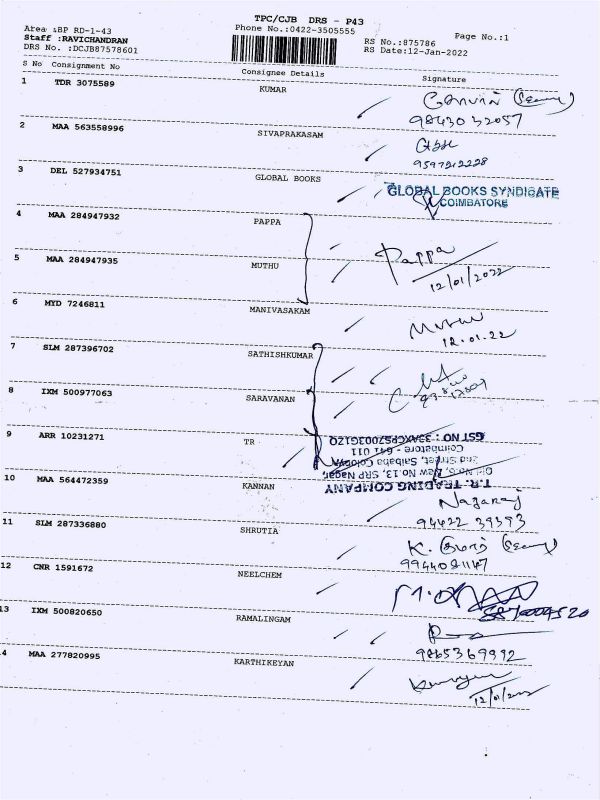 TPC/CJB DRS - P43
Area :BP RD-1-43
Phone No.:0422-3505555
Page No.:1
Staff :RAVICHANDRAN
RS No.:875786
DRS No. :DCJB87578601
RS Date:12-Jan-2022
S No Consignment No Consignee Details Signature
1 TDR 3075589 KUMAR
2 MAA 563558996 SIVAPRAKASAM
9597212228
3 DEL 527934751 GLOBAL BOOKS
GLOBAL BOOKS SYNDICATE
COIMBATORE
4 MAA 284947932 PAPPA
Pappa
12/01/2022
5 MAA 284947935 MUTHU
6 MYD 7246811 MANIVASAKAM
12.01.22
7 SLM 287396702 SATHISHKUMAR
8 IXM 500977063 SARAVANAN
9 ARR 10231271 TR
T.R. TRADING COMPANY
Old No.5, New No.13, SRP Nagar,
2nd Street, Saibaba Colony,
Coimbatore - 641 011
GST NO : 33AXCPS7003G1ZQ
10 MAA 564472359 KANNAN
Nagaraj
94422 39393
11 SLM 287336880 SHRUTIA
9944081147
12 CNR 1591672 NEELCHEM
13 IXM 500820650 RAMALINGAM
9865369992
14 MAA 277820995 KARTHIKEYAN